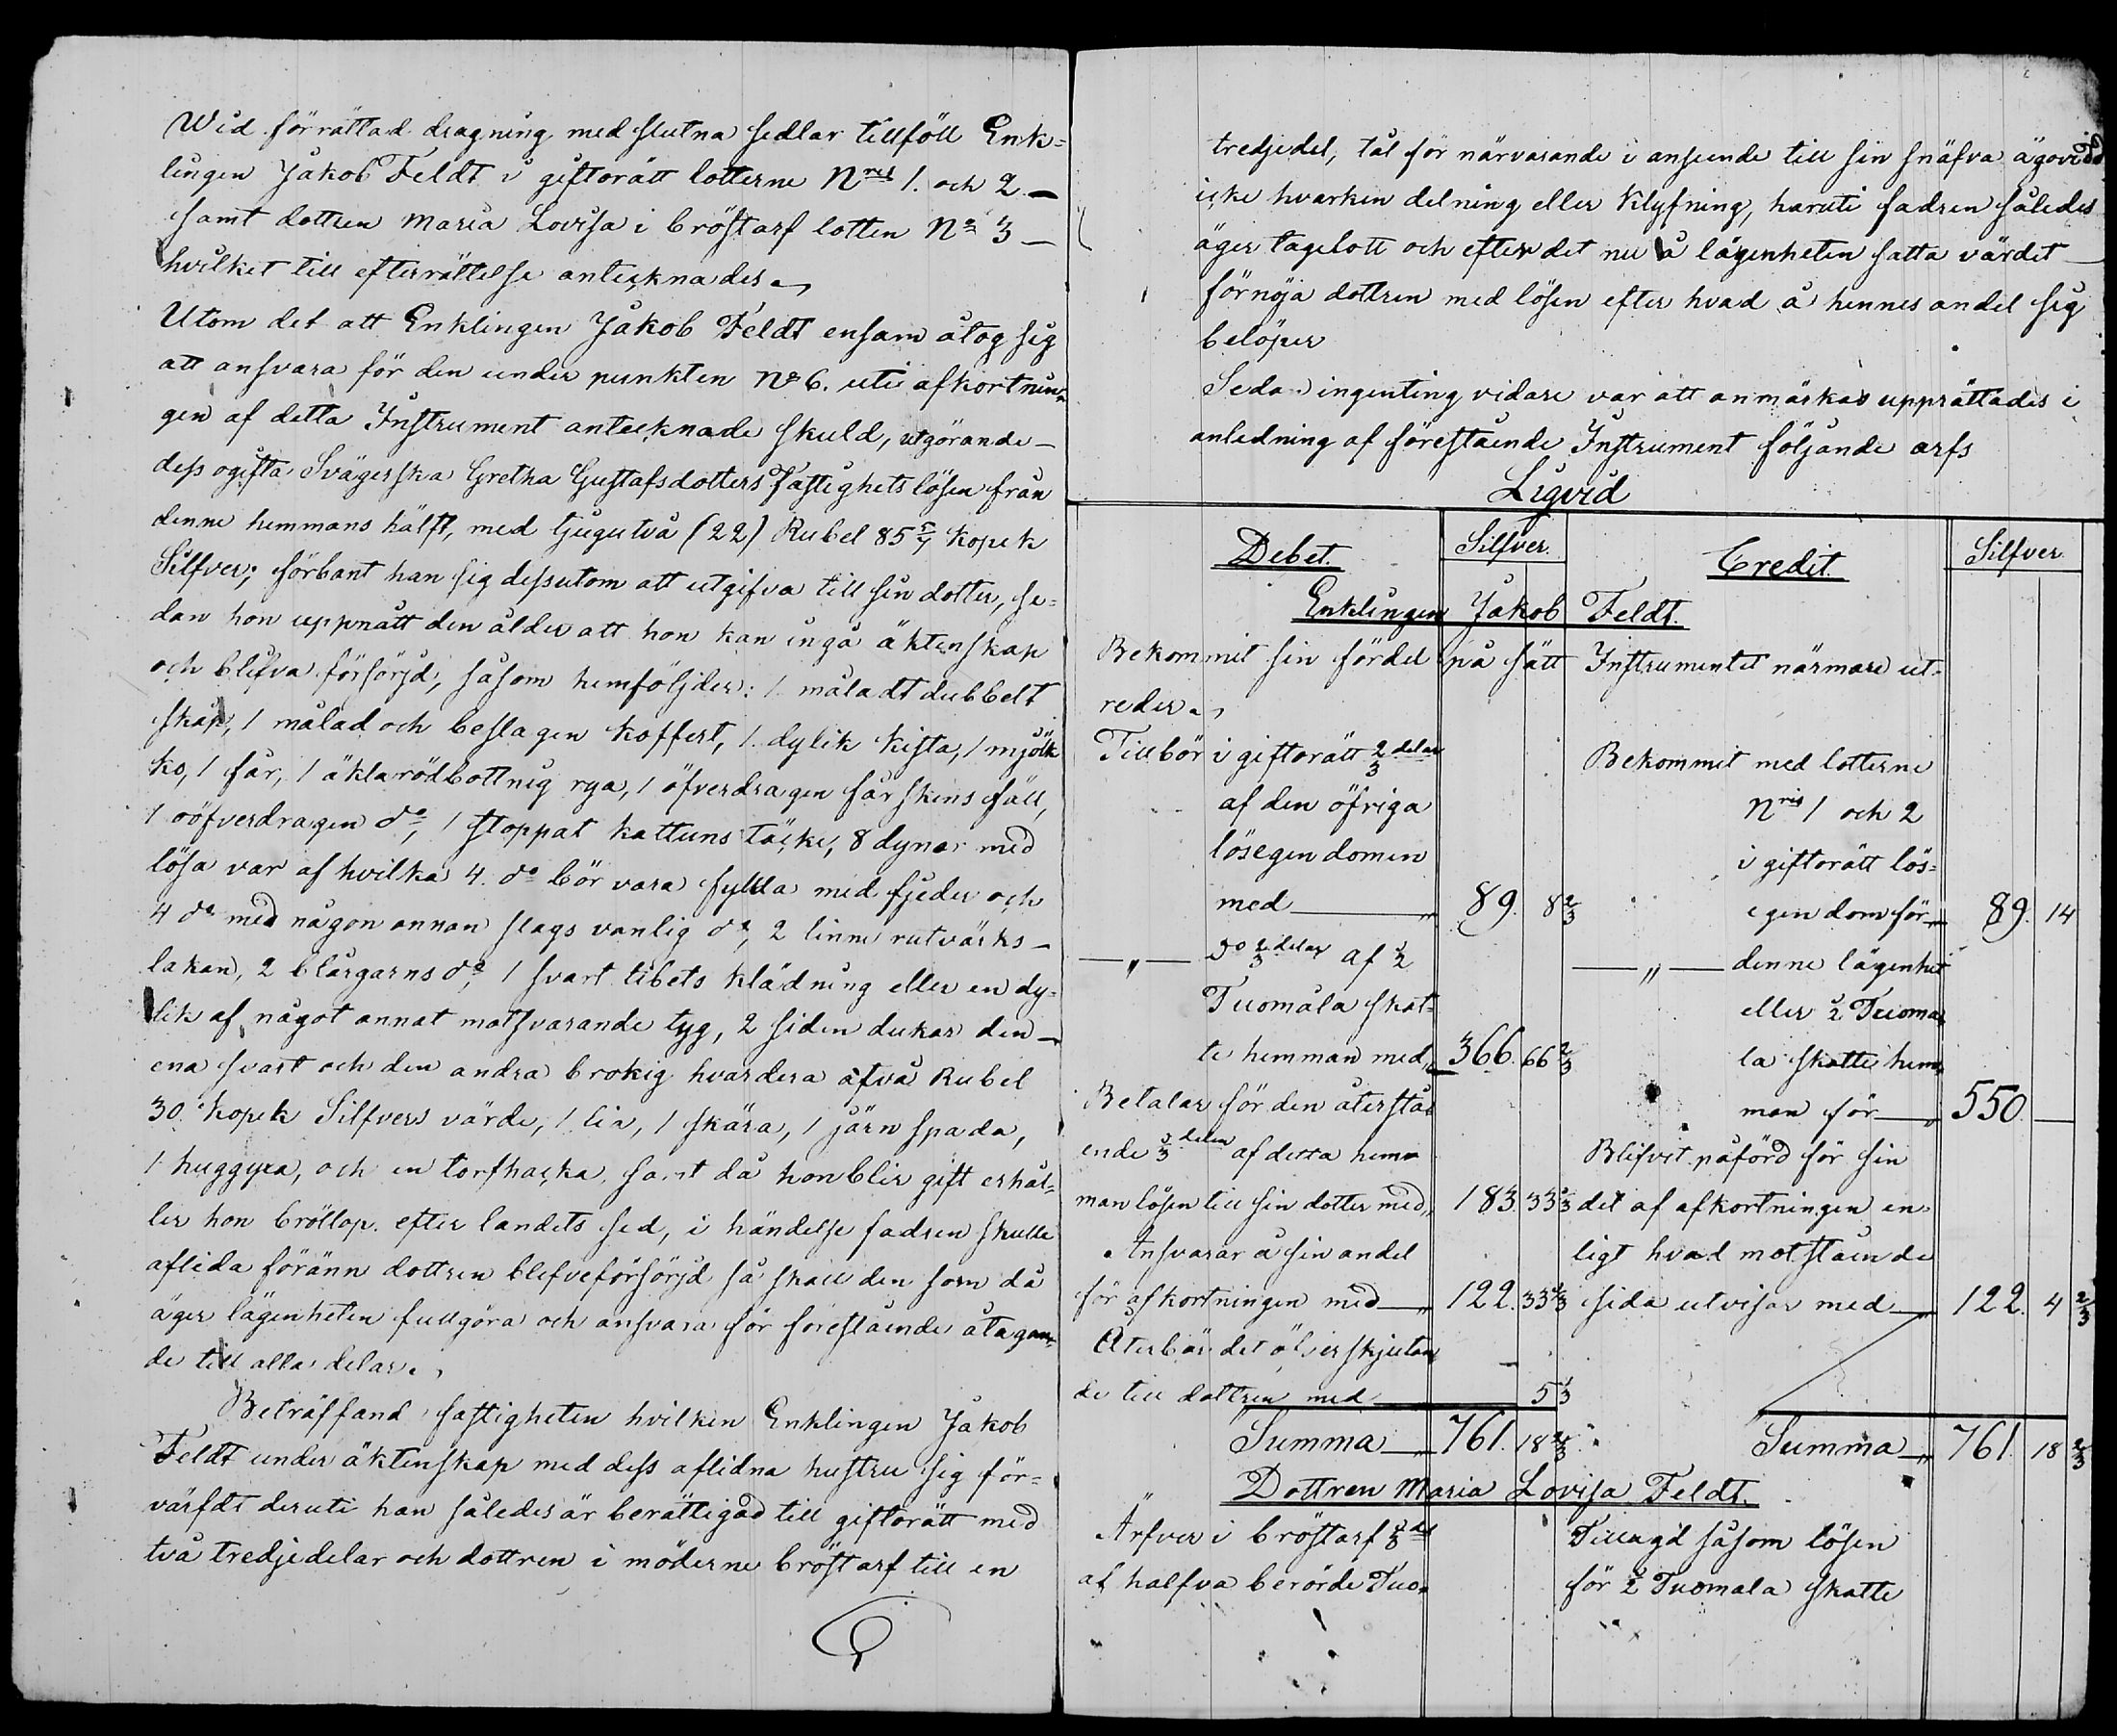 Wid förrättad dragning med slutna sedlar tillföll Enk-
lingen Jakob Feldt i giftorätt lotterne Nris 1. och 2. —
samt dottren Maria Lovisa i bröstarf lotten No 3 —
hvilket till efterrättelse antecknades.
Utom det att Enklingen Jakob Feldt ensam åtog sig
att ansvara för den under punkten No 6. uti afkortnin-
gen af detta Instrument antecknade skuld, utgörande —
dess ogifta Svägerska Gretha Gustafsdotters Fastighets lösen från
denne hemmans hälft, med tjugutvå (22) Rubel 85 5/7 kopek
Silfver; förbant han sig dessutom att utgifva till sin dotter, se-
dan hon uppnått den ålder att hon kan ingå äktenskap
och blifva försörjd, såsom hemföljder: 1. måladt dubbelt
skåp, 1 målad och beslagen koffert, 1. dylik kista, 1 mjölk
ko, 1 får, 1 äkta rödbottnig rya, 1 öfverdragen fårskins fäll,
1 oöfverdragen do, 1 stoppat kattuns täcke, 8 dynor med
lösa var af hvilka 4. do bör vara fyllda med fjeder och
4 do med någon annan slags vanlig do, 2 linne rutvärks —
lakan, 2 blårgarns do, 1 svart tibets klädning eller en dy-
lik af något annat motsvarande tyg, 2 siden dukar den —
ena svart och den andra brokig hvardera af två Rubel
30 kopek Silfvers värde, 1 lia, 1 skära, 1 järn spada,
1 huggyxa, och en torfhacka, samt då hon blir gift erhål-
ler hon bröllop efter landets sed, i händelse fadren skulle
aflida förän dottren blefve försörjd så skall den som då
äger lägenheten fullgöra och ansvara för förestående åtagan-
de till alla delar.
Beträffand fastigheten hvilken Enklingen Jakob
Feldt under äktenskap med dess aflidna hustru sig för-
värfdt deruti han således är berättigad till giftorätt med
två tredjedelar och dottren i möderne bröstarf till en
tredjedel, tål för närvarande i anseende till sin snäfva ägovidd
icke hvarken delning eller klyfning, haruti fadren således
äger tagelott och efter det nu å lägenheten satta värdet —
förnöja dottren med lösen efter hvad å hennes andel sig
belöper
Sedan ingenting vidare var att anmärkas upprättades i
anledning af förestående Instrument följande arfs
Liqvid
Debet. Silfver. Credit. Silfver
Enklingen Jakob Feldt.
Bekommit sin fördel på sätt Instrumentet närmare ut-
reder.
Tillbör i giftorätt 2/3 delar Bekommit med lotterne
af den öfriga Nris 1 och 2
lösegendomen i giftorätt lös-
med — 89. 8 2/3 egendom för — 89. 14
— „ — do 2/3 delar af 1/2 — „ — denne lägenhet
Tuomala skat- eller 1/2 Tuoma-
te hemman med „ 366. 66 2/3 la skatte hem-
Betalar för den återstå- man för — 550. —
ende 1/3 delen af detta hem- Blifvit påförd för sin
man lösen till sin dotter med „ 183. 33 1/3 del af afkortningen en-
Ansvarar å sin andel ligt hvad motstående
för afkortningen med — 122. 33 1/3 sida utvisar med — 122. 4 2/3
Återbär det öfverskjutan-
de till dottren med — 5 1/3
Summa — 761. 18 2/3 Summa — 761. 18 2/3
Dottren Maria Lovisa Feldt.
Ärfver i bröstarf 1/3 del Tillagd såsom lösen
af halfva berörde Tuo- för 1/2 Tuomala skatte